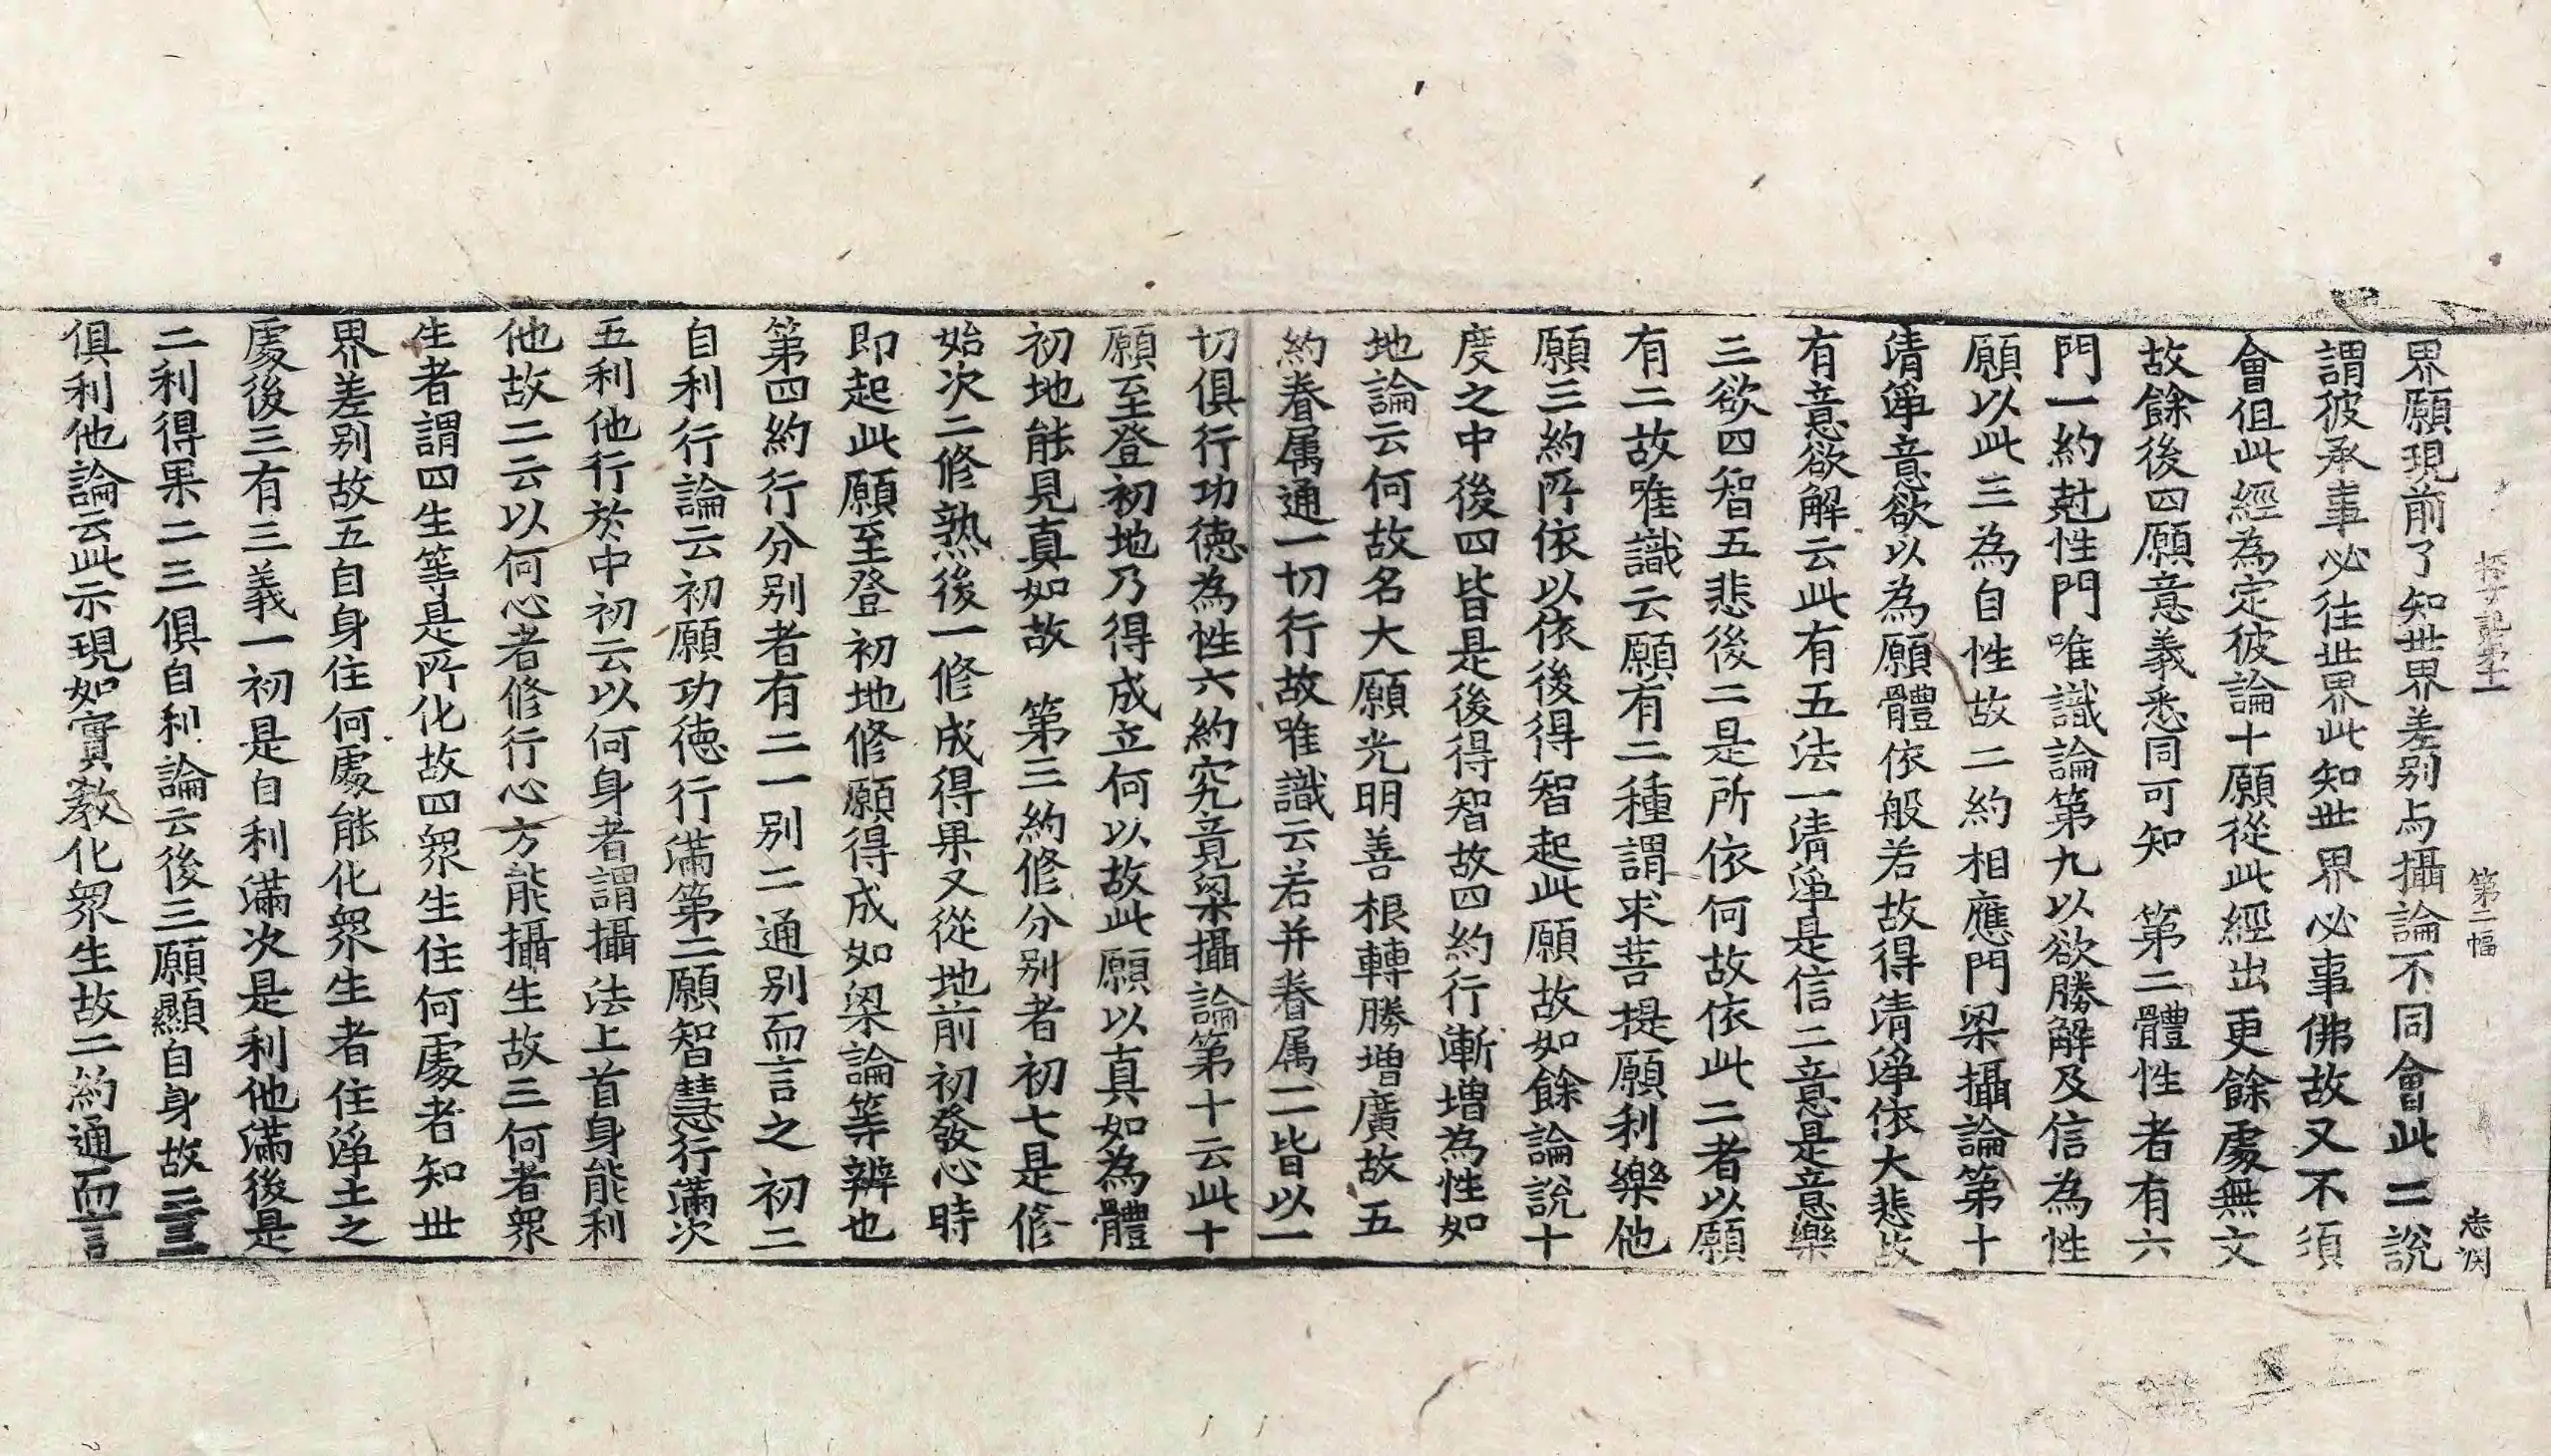 探玄記第十一 第二幅 志閑
界願現前了知世界差别与攝論不同會此二說
謂彼承事必往世界此知世界必事佛故又不須
會但此經為定彼論十願從此經出更餘處無文
故餘後四願意義悉同可知　第二體性者有六
門一約尅性門唯識論第九以欲勝解及信為性
願以此三為自性故二約相應門梁攝論第十
清淨意欲以為願體依般若故得清淨依大悲故
有意欲解云此有五法一清淨是信二意是意樂
三欲四智五悲後二是所依何故依此二者以願
有二故唯識云願有二種謂求菩提願利樂他
願三約所依以依後得智起此願故如餘論說十
度之中後四皆是後得智故四約行漸增為性如
地論云何故名大願光明善根轉勝增廣故五
約眷属通一切行故唯識云若并眷属一皆以一
切俱行功德為性六約究竟梁攝論第十云此十
願至登初地乃得成立何以故此願以真如為體
初地能見真如故　第三約修分别者初七是修
始次二修熟後一修成得果又從地前初發心時
即起此願至登初地修願得成如梁論等辨也
第四約行分别者有二一别二通别而言之初二
自利行論云初願功德行滿第二願智慧行滿次
五利他行於中初云以何身者謂攝法上首身能利
他故二云以何心者修行心方能攝生故三何者衆
生者謂四生等是所化故四衆生住何處者知世
界差别故五自身住何處能化衆生者住淨土之
處後三有三義一初是自利滿次是利他滿後是
二利得果二三俱自利論云後三願顯自身故三三
俱利他論云此示現如實教化衆生故二約通而言